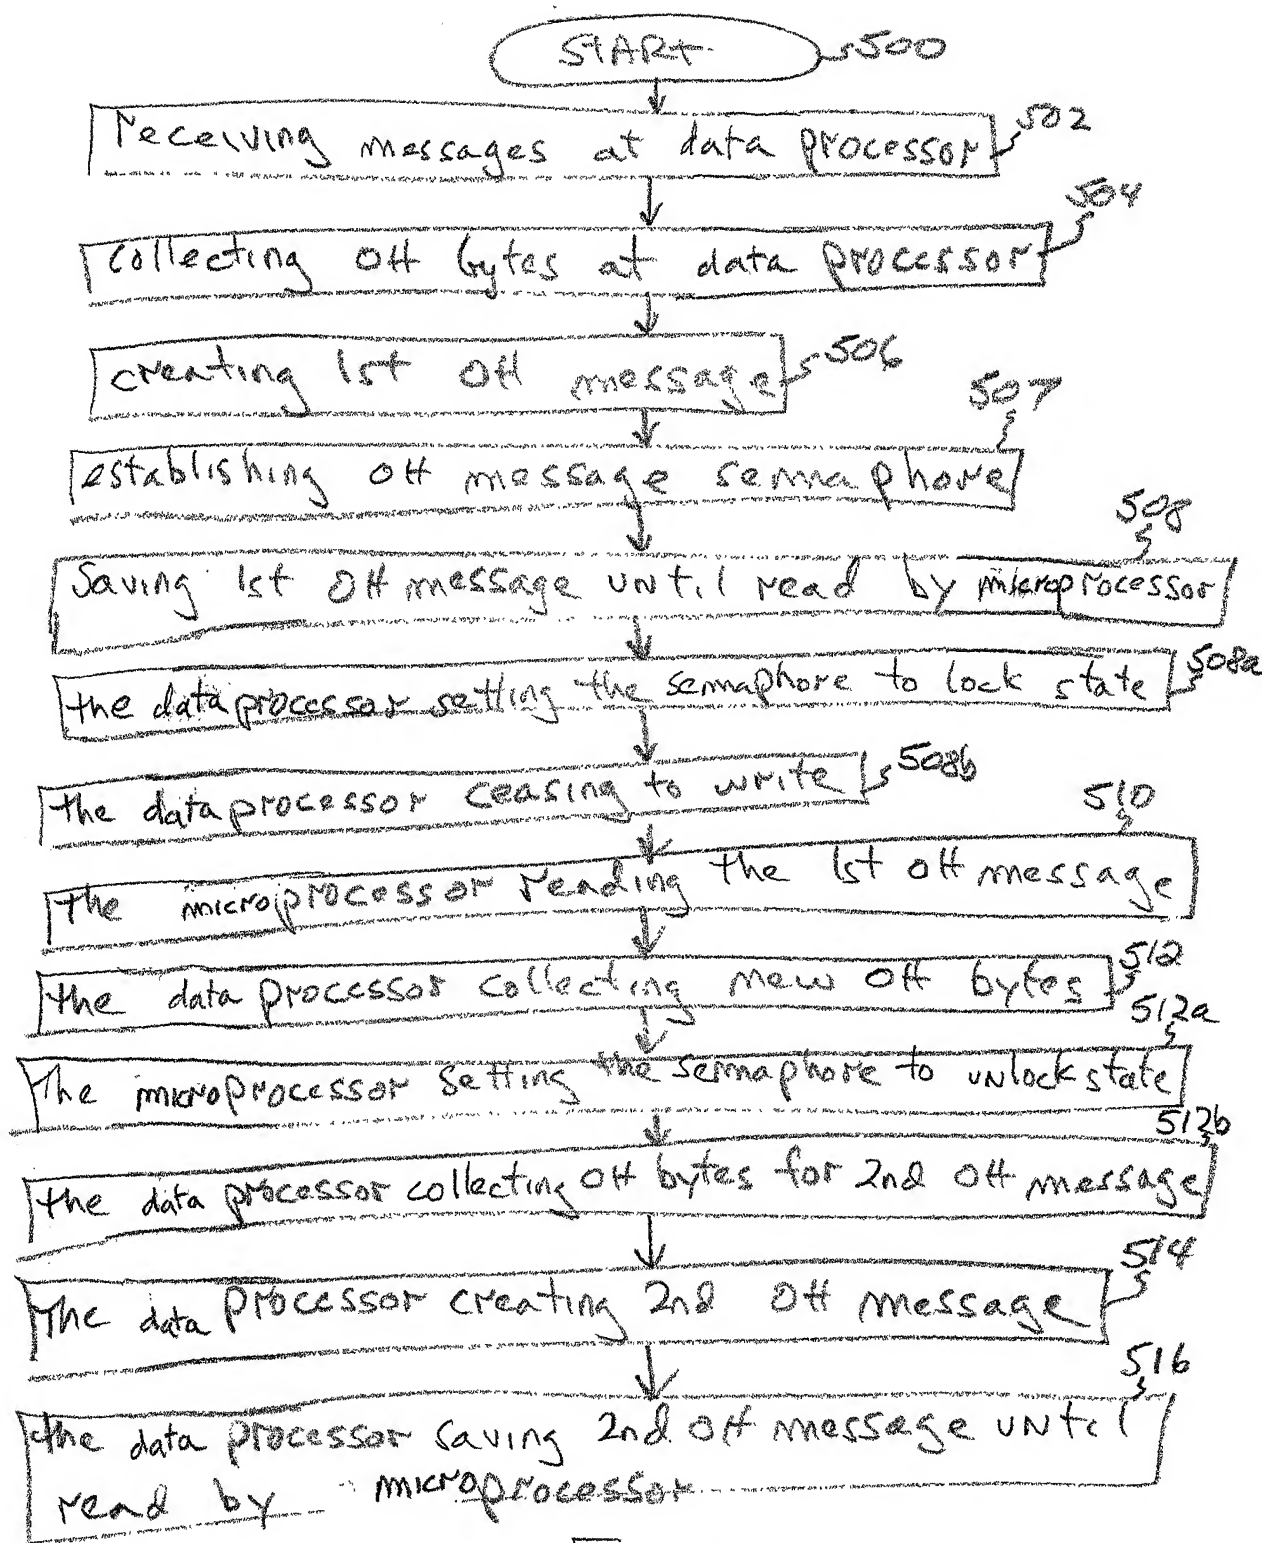 START 500
receiving messages at data processor 502
collecting OH bytes at data processor 504
creating 1st OH message 506
507
establishing OH message semaphore
508
Saving 1st OH message until read by microprocessor
the data processor setting the semaphore to lock state 508a
the data processor ceasing to write 508b
510
the microprocessor reading the 1st OH message
the data processor collecting new OH bytes 512
512a
The microprocessor setting the semaphore to unlock state
512b
the data processor collecting OH bytes for 2nd OH message
514
The data processor creating 2nd OH message
516
the data processor saving 2nd OH message until
read by microprocessor